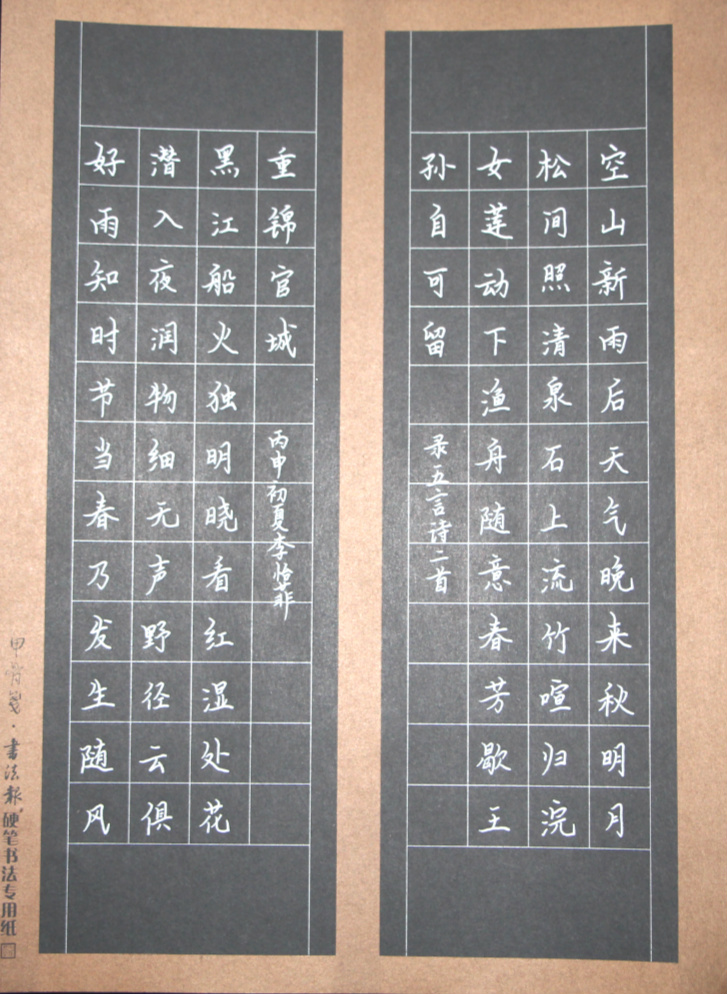 空山新雨后天气晚来秋明月
松间照清泉石上流竹喧归浣
女莲动下渔舟随意春芳歇王
孙自可留
录五言诗二首
好雨知时节当春乃发生随风
潜入夜润物细无声野径云俱
黑江船火独明晓看红湿处花
重锦官城
丙申初夏李怡菲
甲骨笺·书法报硬笔书法专用纸